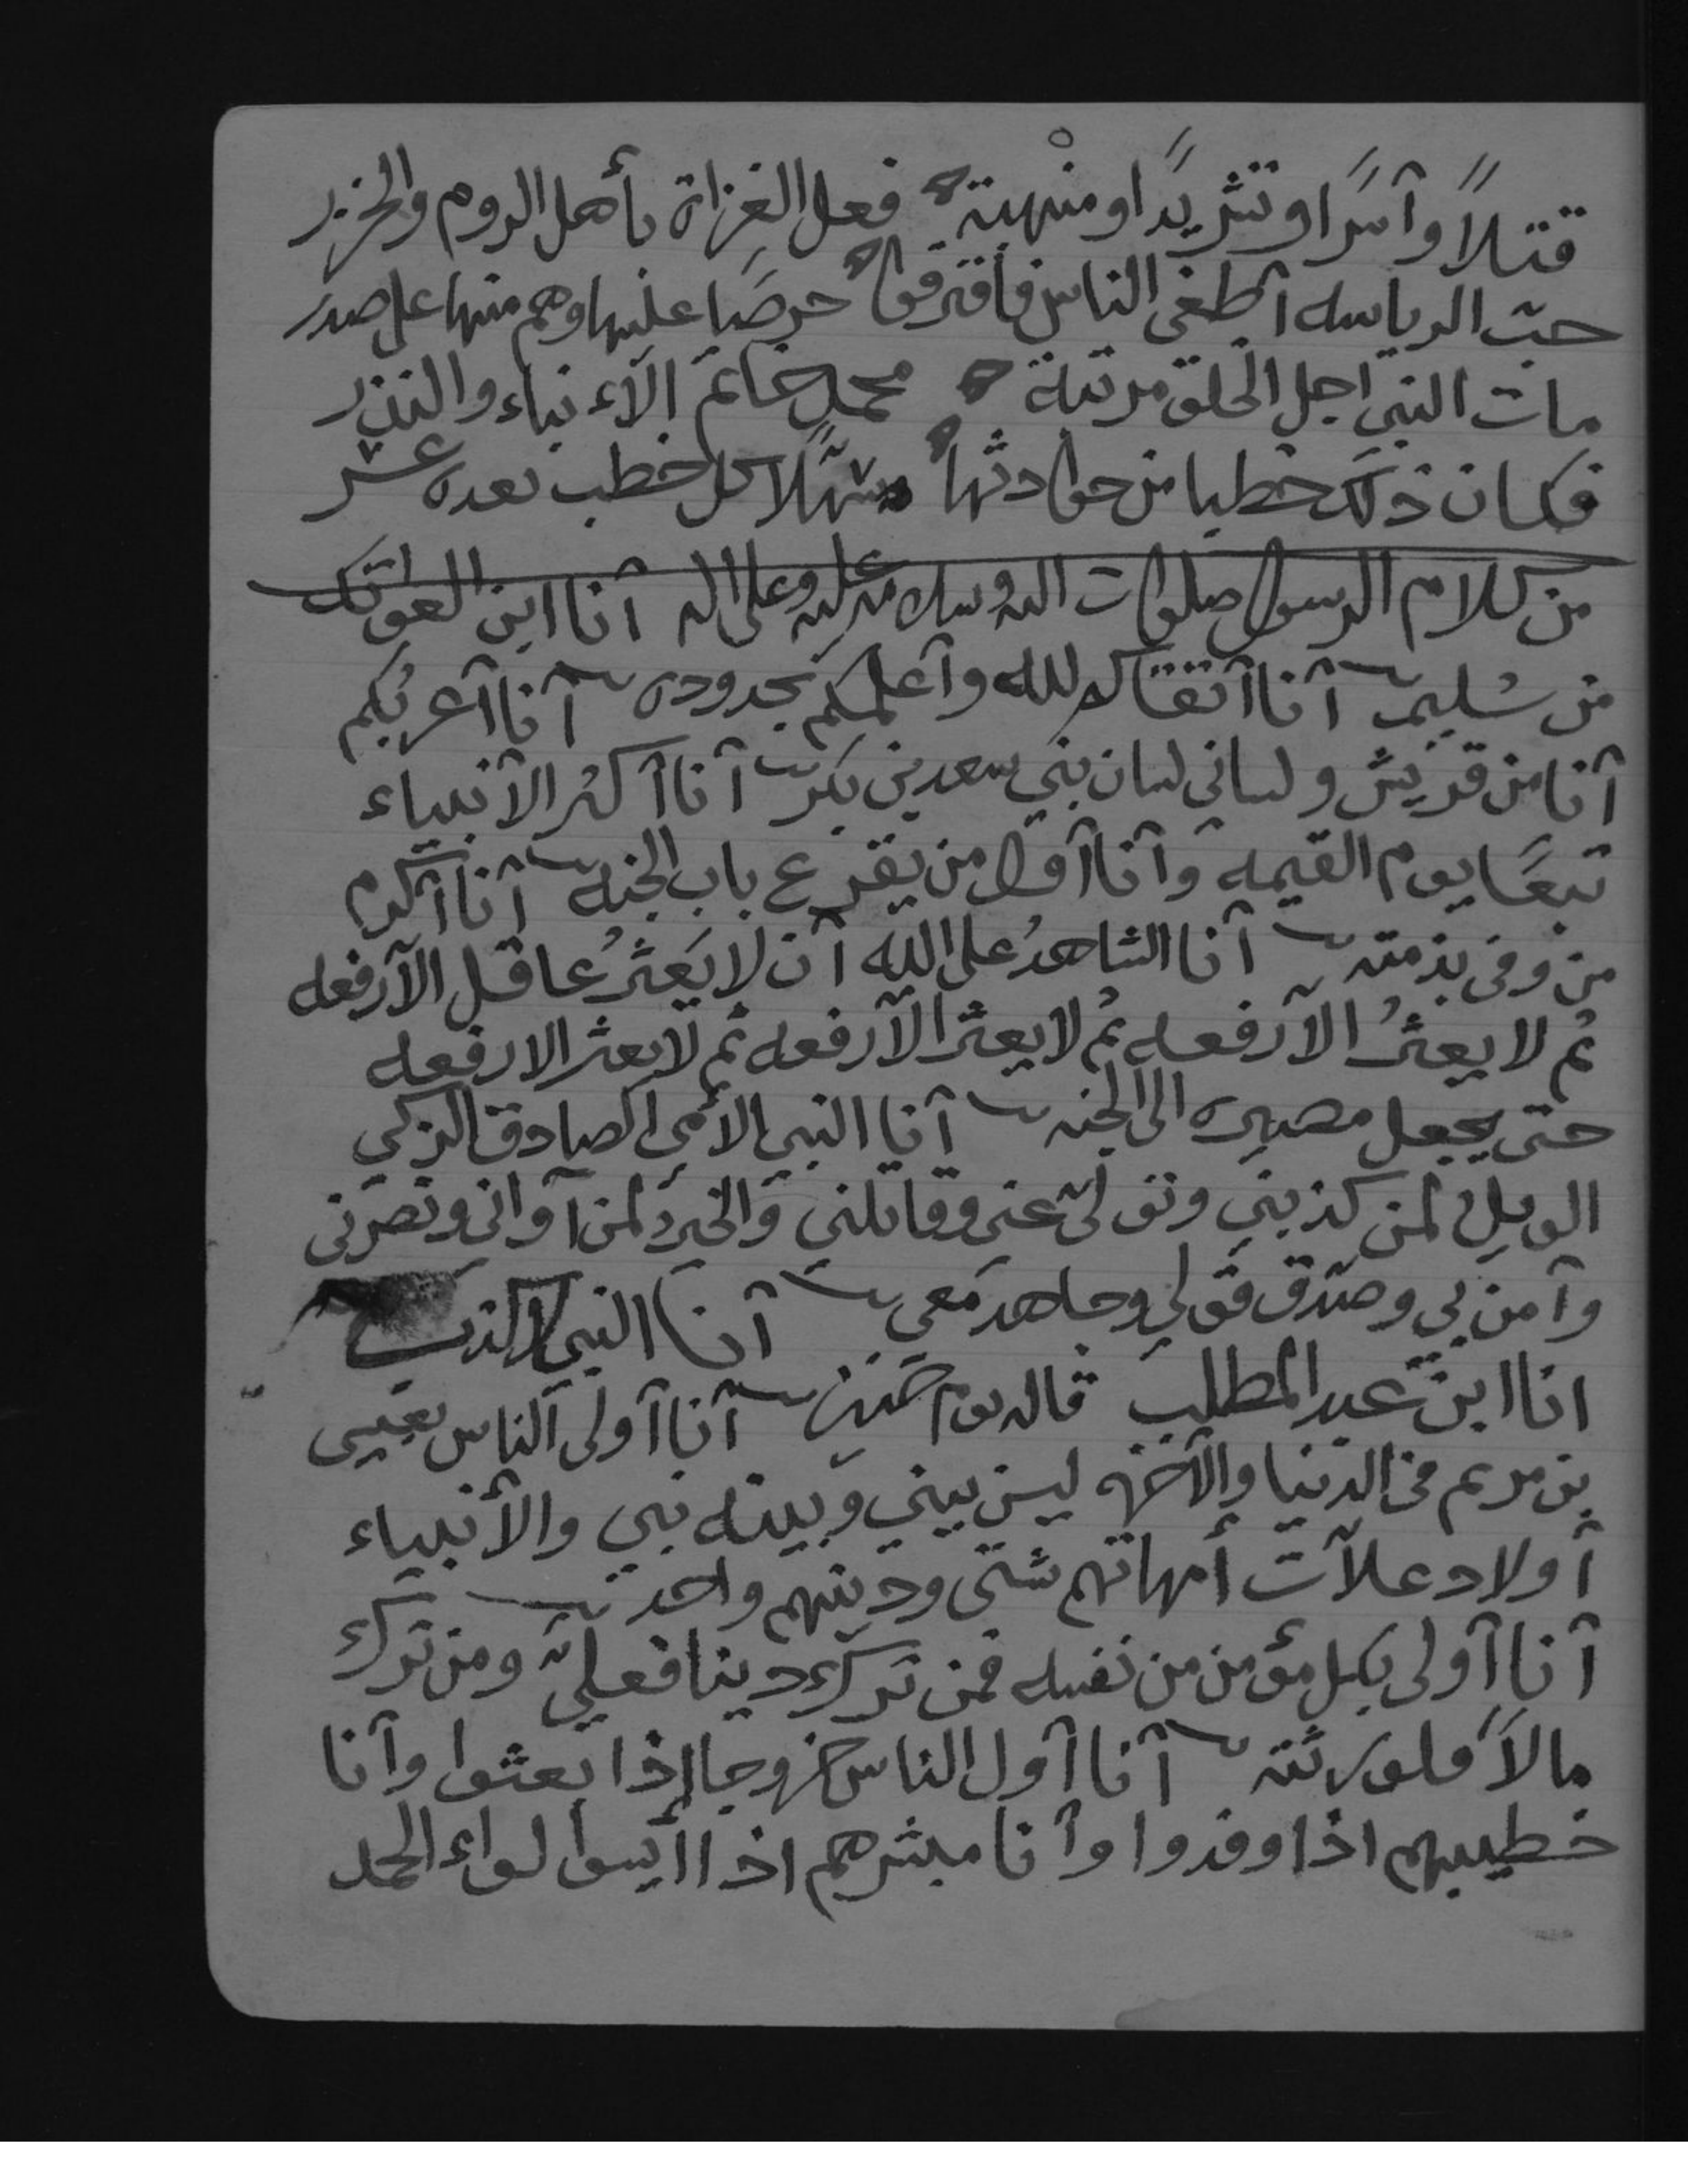 قتلاً وآسرًا وتشريدًا ومنهبة فعل الغزاة بأهل الروم والخزر
حبّ الرياسه اطغى الناس فافترقوا حرصًا عليها وهم منها على صدر
مات النبي اجل الخلق مرتبة محمد خاتم الآنبياء والنذر
فكان ذلك خطبا من حوادثها سهّلا كل خطب بعده عسر
من كلام الرسول صلوات الله وسلامه عليه وعلى اله آنا ابن العواتك
من سُليم آنا آتقاكم لله وآعلمكم بحدوده آنا آعربُكم
آنا من قريش ولساني لسان بني سعد بن بكر آنا آكثر الآنبياء
تبعًا يوم القيمه وآنا آول من يقرع باب الجنه آنا آكرم
من وفى بذمته آنا الشاهدُ على الله آن لا يَعثرُ عاقل الآ رفعه
ثم لا يعثرُ الآ رفعه ثم لا يعثر الآ رفعه ثم لا يعثر الا رفعه
حتى يجعل مصيره الى الجنه آنا النبي الأمي الصادق الزكي
الويل لمن كذبني وتولىّ عنى وقاتلني والخير لمن آواني ونصرنى
وآمن بي وصدّق قولي وجاهد معي آنا النبي لا كذب
انا ابن عبد المطلب قاله يوم حنين آنا آولى الناس بعيسى
بن مريم في الدنيا والآخره ليس بيني وبينه نبي والأنبياء
أولاد علاّت أمهاتهم شتى ودينهم واحد
آنا آولى بكل مؤمن من نفسه فمن ترك دينا فعليّ ومن ترك
مالاً فلورثته آنا آول الناس خروجا إذا بعثوا وآنا
خطيبهم اذا وفدوا وآنا مبشرهم اذا ايسوا لواء الحمد